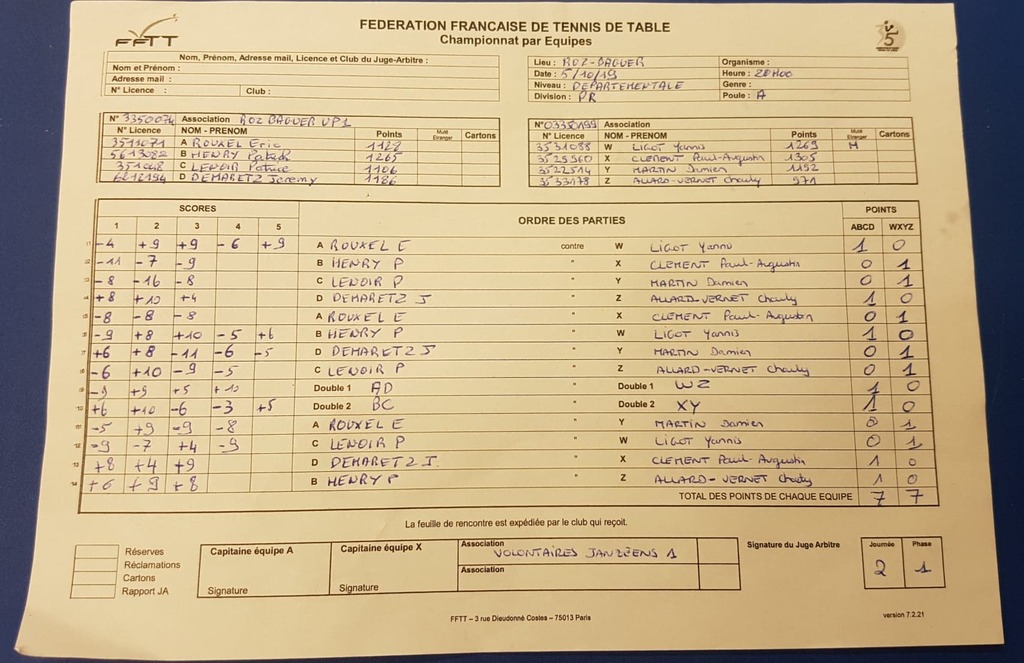 FFTT
FEDERATION FRANCAISE DE TENNIS DE TABLE
Championnat par Equipes
Nom, Prénom, Adresse mail, Licence et Club du Juge-Arbitre :
Nom et Prénom :
Adresse mail :
N° Licence : Club :
Lieu : ROZ-BAGUER Organisme :
Date : 5/10/19 Heure : 20H00
Niveau : DEPARTEMENTALE Genre :
Division : PR Poule : A
N° 3350074 Association ROZ BAGUER UP1
N° Licence NOM - PRENOM Points Muté Etranger Cartons
A ROUXEL Eric 1122
B HENRY Patrick 1265
C LENOIR Patrice 1106
D DEMARETZ Jeremy 1186
N° 03350199 Association
N° Licence NOM - PRENOM Points Muté Etranger Cartons
3531088 W LIGOT Yannis 1269 M
3529560 X CLEMENT Paul-Augustin 1305
3522514 Y MARTIN Damien 1192
3533178 Z ALLARD-VERNET Chauly 971
SCORES ORDRE DES PARTIES POINTS
1 2 3 4 5 ABCD WXYZ
-4 +9 +9 -6 +9 A ROUXEL E contre W LIGOT Yannis 1 0
-11 -7 -9 B HENRY P " X CLEMENT Paul-Augustin 0 1
-8 -16 -8 C LENOIR P " Y MARTIN Damien 0 1
+8 +10 +4 D DEMARETZ J " Z ALLARD-VERNET Chauly 1 0
-8 -8 -8 A ROUXEL E " X CLEMENT Paul-Augustin 0 1
-9 +8 +10 -5 +6 B HENRY P " W LIGOT Yannis 1 0
+6 +8 -11 -6 -5 D DEMARETZ J " Y MARTIN Damien 0 1
-6 +10 -9 -5 C LENOIR P " Z ALLARD-VERNET Chauly 0 1
-9 +9 +5 +10 Double 1 AD " Double 1 WZ 1 0
+6 +10 -6 -3 +5 Double 2 BC " Double 2 XY 1 0
-5 +9 -9 -8 A ROUXEL E " Y MARTIN Damien 0 1
-9 -7 +4 -9 C LENOIR P " W LIGOT Yannis 0 1
+8 +4 +9 D DEMARETZ J. " X CLEMENT Paul-Augustin 1 0
+6 +9 +8 B HENRY P " Z ALLARD-VERNET Chauly 1 0
TOTAL DES POINTS DE CHAQUE EQUIPE 7 7
La feuille de rencontre est expédiée par le club qui reçoit.
Réserves
Réclamations
Cartons
Rapport JA
Capitaine équipe A
Signature
Capitaine équipe X
Signature
Association
VOLONTAIRES JANZEENS 1
Association
Signature du Juge Arbitre
Journée Phase
2 1
FFTT – 3 rue Dieudonné Costes – 75013 Paris
version 7.2.21